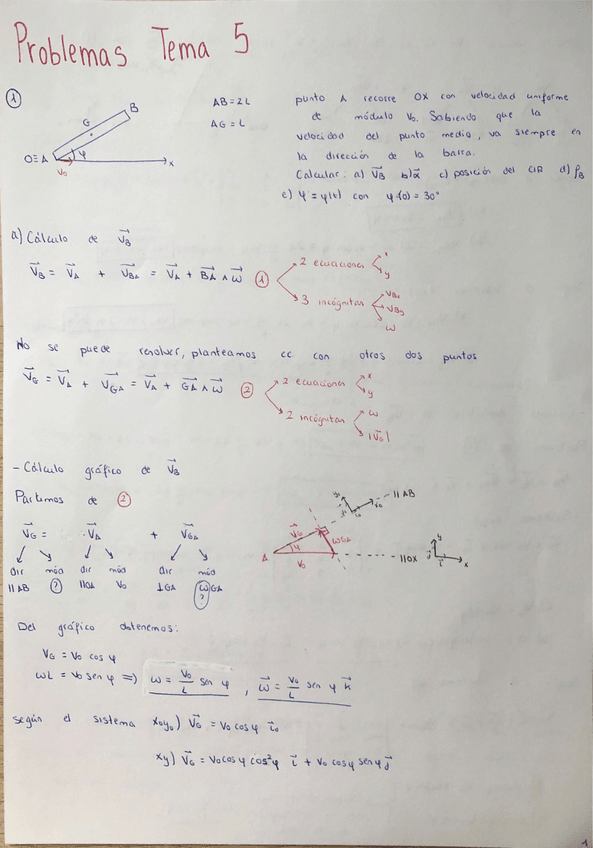 Problemas Tema 5
1
B
G
O≡A
φ
V₀
x
AB = 2L
AG = L
punto A recorre OX con velocidad uniforme
de módulo V₀. Sabiendo que la
velocidad del punto medio, va siempre en
la dirección de la barra.
Calcular: a) V⃗B b) α⃗ c) posición del CIR d) ρB
e) φ = φ(t) con φ(0) = 30°
a) Cálculo de V⃗B
V⃗B = V⃗A + V⃗BA = V⃗A + B⃗A ∧ ω⃗ ①
2 ecuaciones
x
y
3 incógnitas
VBx
VBy
ω
No se puede resolver, planteamos cc con otros dos puntos
V⃗G = V⃗A + V⃗GA = V⃗A + G⃗A ∧ ω⃗ ②
2 ecuaciones
x
y
2 incógnitas
ω
|V⃗G|
- Cálculo gráfico de V⃗B
Partimos de ②
V⃗G = V⃗A + V⃗GA
dir mód dir mód dir mód
||AB ? ||OA V₀ ⊥GA ωGA ?
A
V⃗G
φ
V₀
ωGA
y₀
j₀
i₀
x₀
||AB
||OX
y
j
i
x
Del gráfico obtenemos:
VG = V₀ cos φ
ωL = V₀ sen φ => ω = V₀/L sen φ , ω⃗ = V₀/L sen φ k⃗
según el sistema x₀y₀) V⃗G = V₀ cos φ i⃗₀
xy) V⃗G = V₀cos φ cos²φ i⃗ + V₀ cosφ sen φ j⃗
1